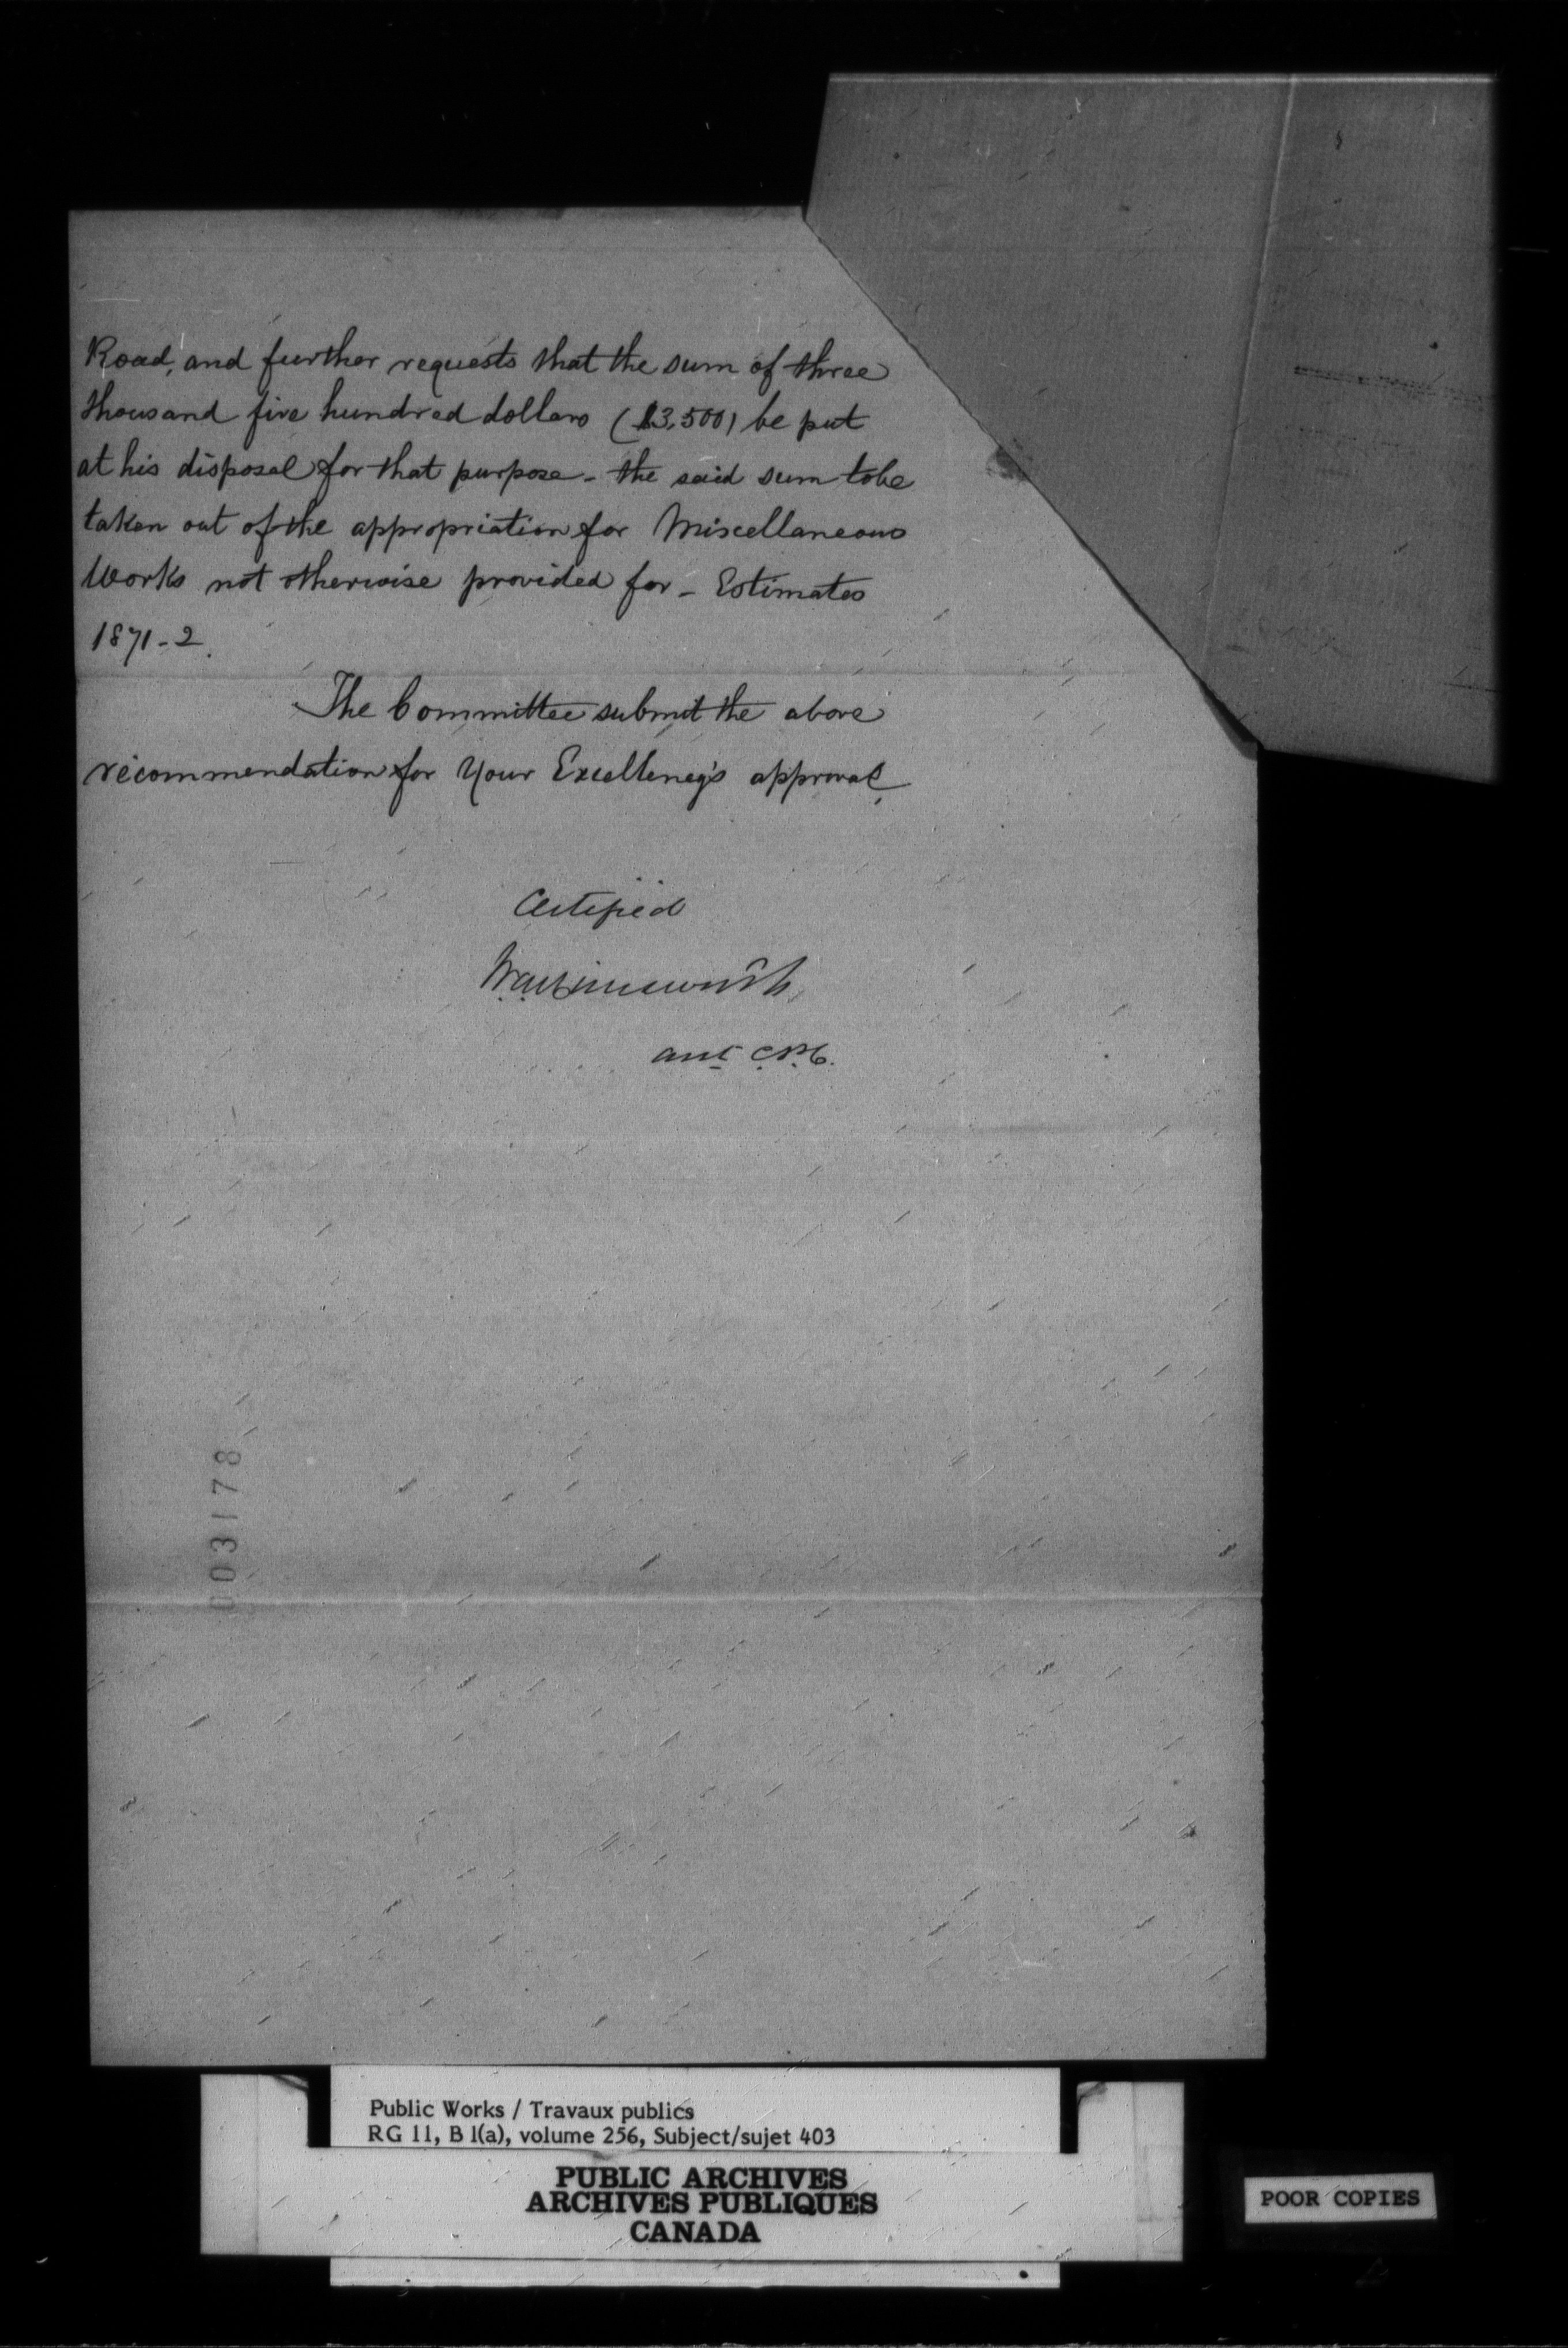 Road, and further requests that the sum of three
thousand five hundred dollars ($3,500) be put
at his disposal for that purpose - the said sum to be
taken out of the appropriation for Miscellaneous
Works not otherwise provided for - Estimates
1871-2.
The Committee submit the above
recommendation for Your Excellency's approval.
Certified
C.P.C.
003178
Public Works / Travaux publics
RG 11, B 1(a), volume 256, Subject/sujet 403
PUBLIC ARCHIVES
ARCHIVES PUBLIQUES
CANADA
POOR COPIES